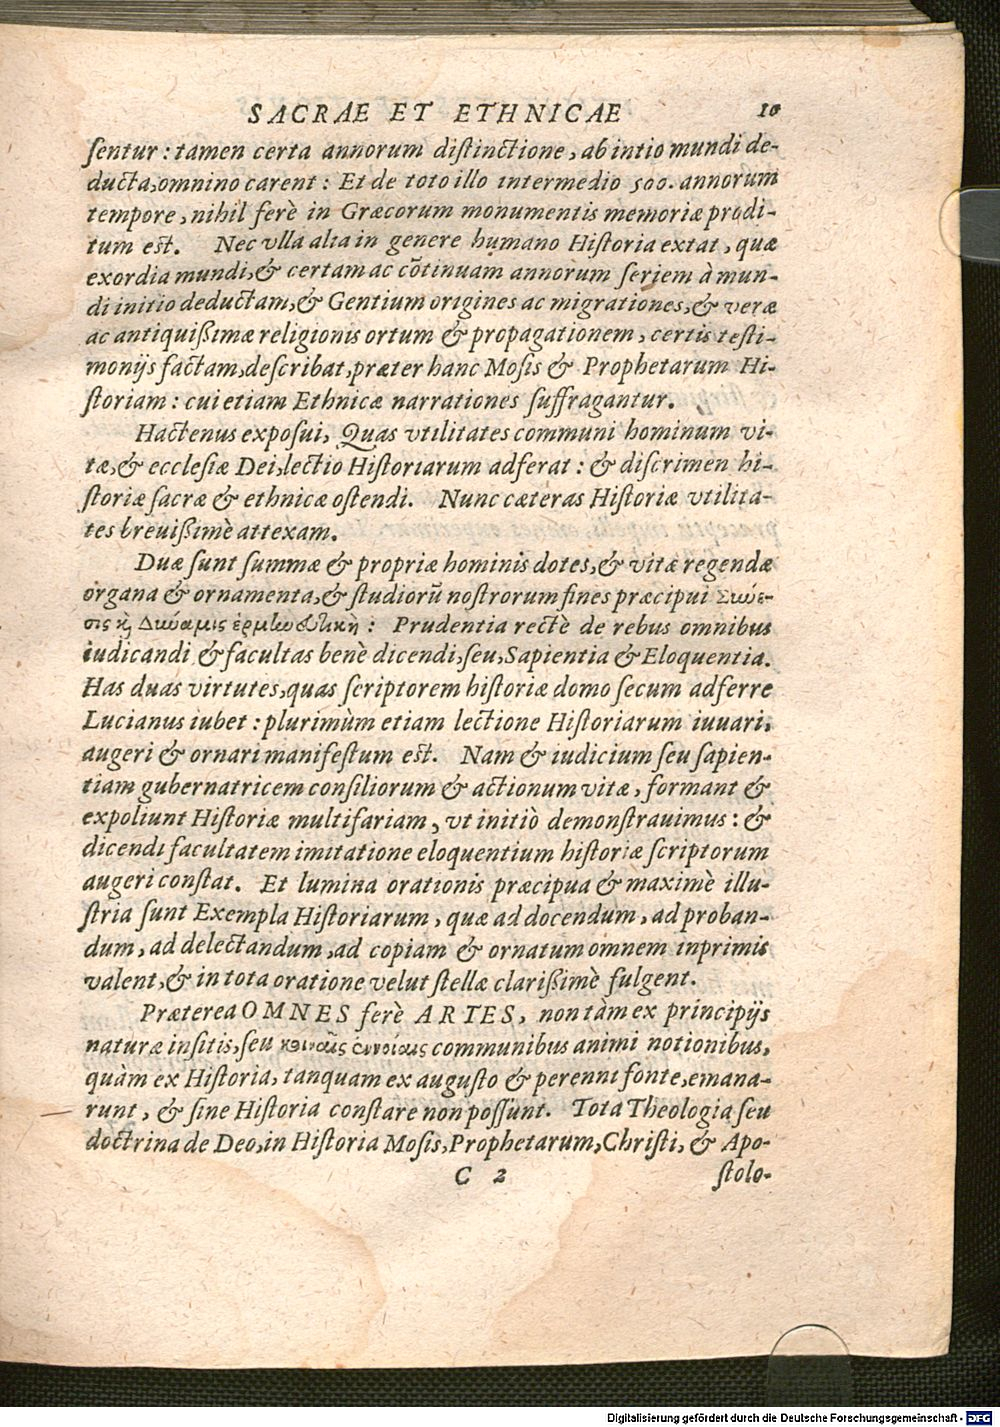 SACRAE ET ETHNICAE 10
sentur: tamen certa annorum distinctione, ab intio mundi de-
ducta, omnino carent: Et de toto illo intermedio 500. annorum
tempore, nihil ferè in Græcorum monumentis memoriæ prodi-
tum est. Nec vlla alia in genere humano Historia extat, quæ
exordia mundi, & certam ac cõtinuam annorum seriem à mun-
di initio deductam, & Gentium origines ac migrationes, & veræ
ac antiquißimæ religionis ortum & propagationem, certis testi-
monijs factam, describat, præter hanc Mosis & Prophetarum Hi-
storiam: cui etiam Ethnicæ narrationes suffragantur.
Hactenus exposui, Quas vtilitates communi hominum vi-
tæ, & ecclesiæ Dei, lectio Historiarum adferat: & discrimen hi-
storiæ sacræ & ethnicæ ostendi. Nunc cæteras Historiæ vtilita-
tes breuißimè attexam.
Duæ sunt summæ & propriæ hominis dotes, & vitæ regendæ
organa & ornamenta, & studiorũ nostrorum fines præcipui Σύνε-
σις ϗ Δύναμις ἑρμηνευτικὴ: Prudentia rectè de rebus omnibus
iudicandi & facultas benè dicendi, seu, Sapientia & Eloquentia.
Has duas virtutes, quas scriptorem historiæ domo secum adferre
Lucianus iubet: plurimùm etiam lectione Historiarum iuuari,
augeri & ornari manifestum est. Nam & iudicium seu sapien-
tiam gubernatricem consiliorum & actionum vitæ, formant &
expoliunt Historiæ multifariam, vt initiò demonstrauimus: &
dicendi facultatem imitatione eloquentium historiæ scriptorum
augeri constat. Et lumina orationis præcipua & maximè illu-
stria sunt Exempla Historiarum, quæ ad docendum, ad proban-
dum, ad delectandum, ad copiam & ornatum omnem inprimis
valent, & in tota oratione velut stellæ clarißimè fulgent.
Præterea OMNES ferè ARTES, non tàm ex principijs
naturæ insitis, seu κοιναῖς ἐννοίαις communibus animi notionibus,
quàm ex Historia, tanquam ex augusto & perenni fonte, emana-
runt, & sine Historia constare non possunt. Tota Theologia seu
doctrina de Deo, in Historia Mosis, Prophetarum, Christi, & Apo-
C 2 stolo-
Digitalisierung gefördert durch die Deutsche Forschungsgemeinschaft - DFG